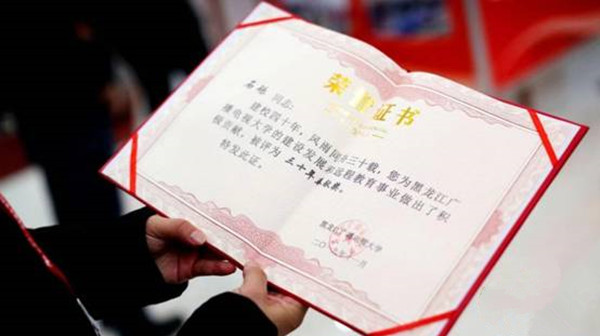 荣誉证书
同志：
建校四十年，风雨同舟三十载，您为黑龙江广
播电视大学的建设发展和远程教育事业做出了积
极贡献，被评为 三十年奉献奖。
特发此证。
黑龙江广播电视大学